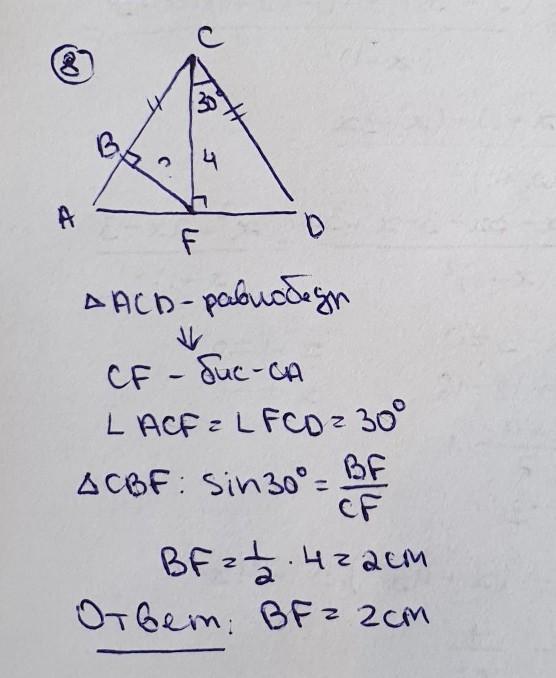 8
C
30°
B
?
4
A
F
D
△ACD - равнобедр
⇓
CF - бис-са
∠ACF = ∠FCD = 30°
△CBF: sin30° = BF/CF
BF = 1/2 · 4 = 2см
Ответ: BF = 2см